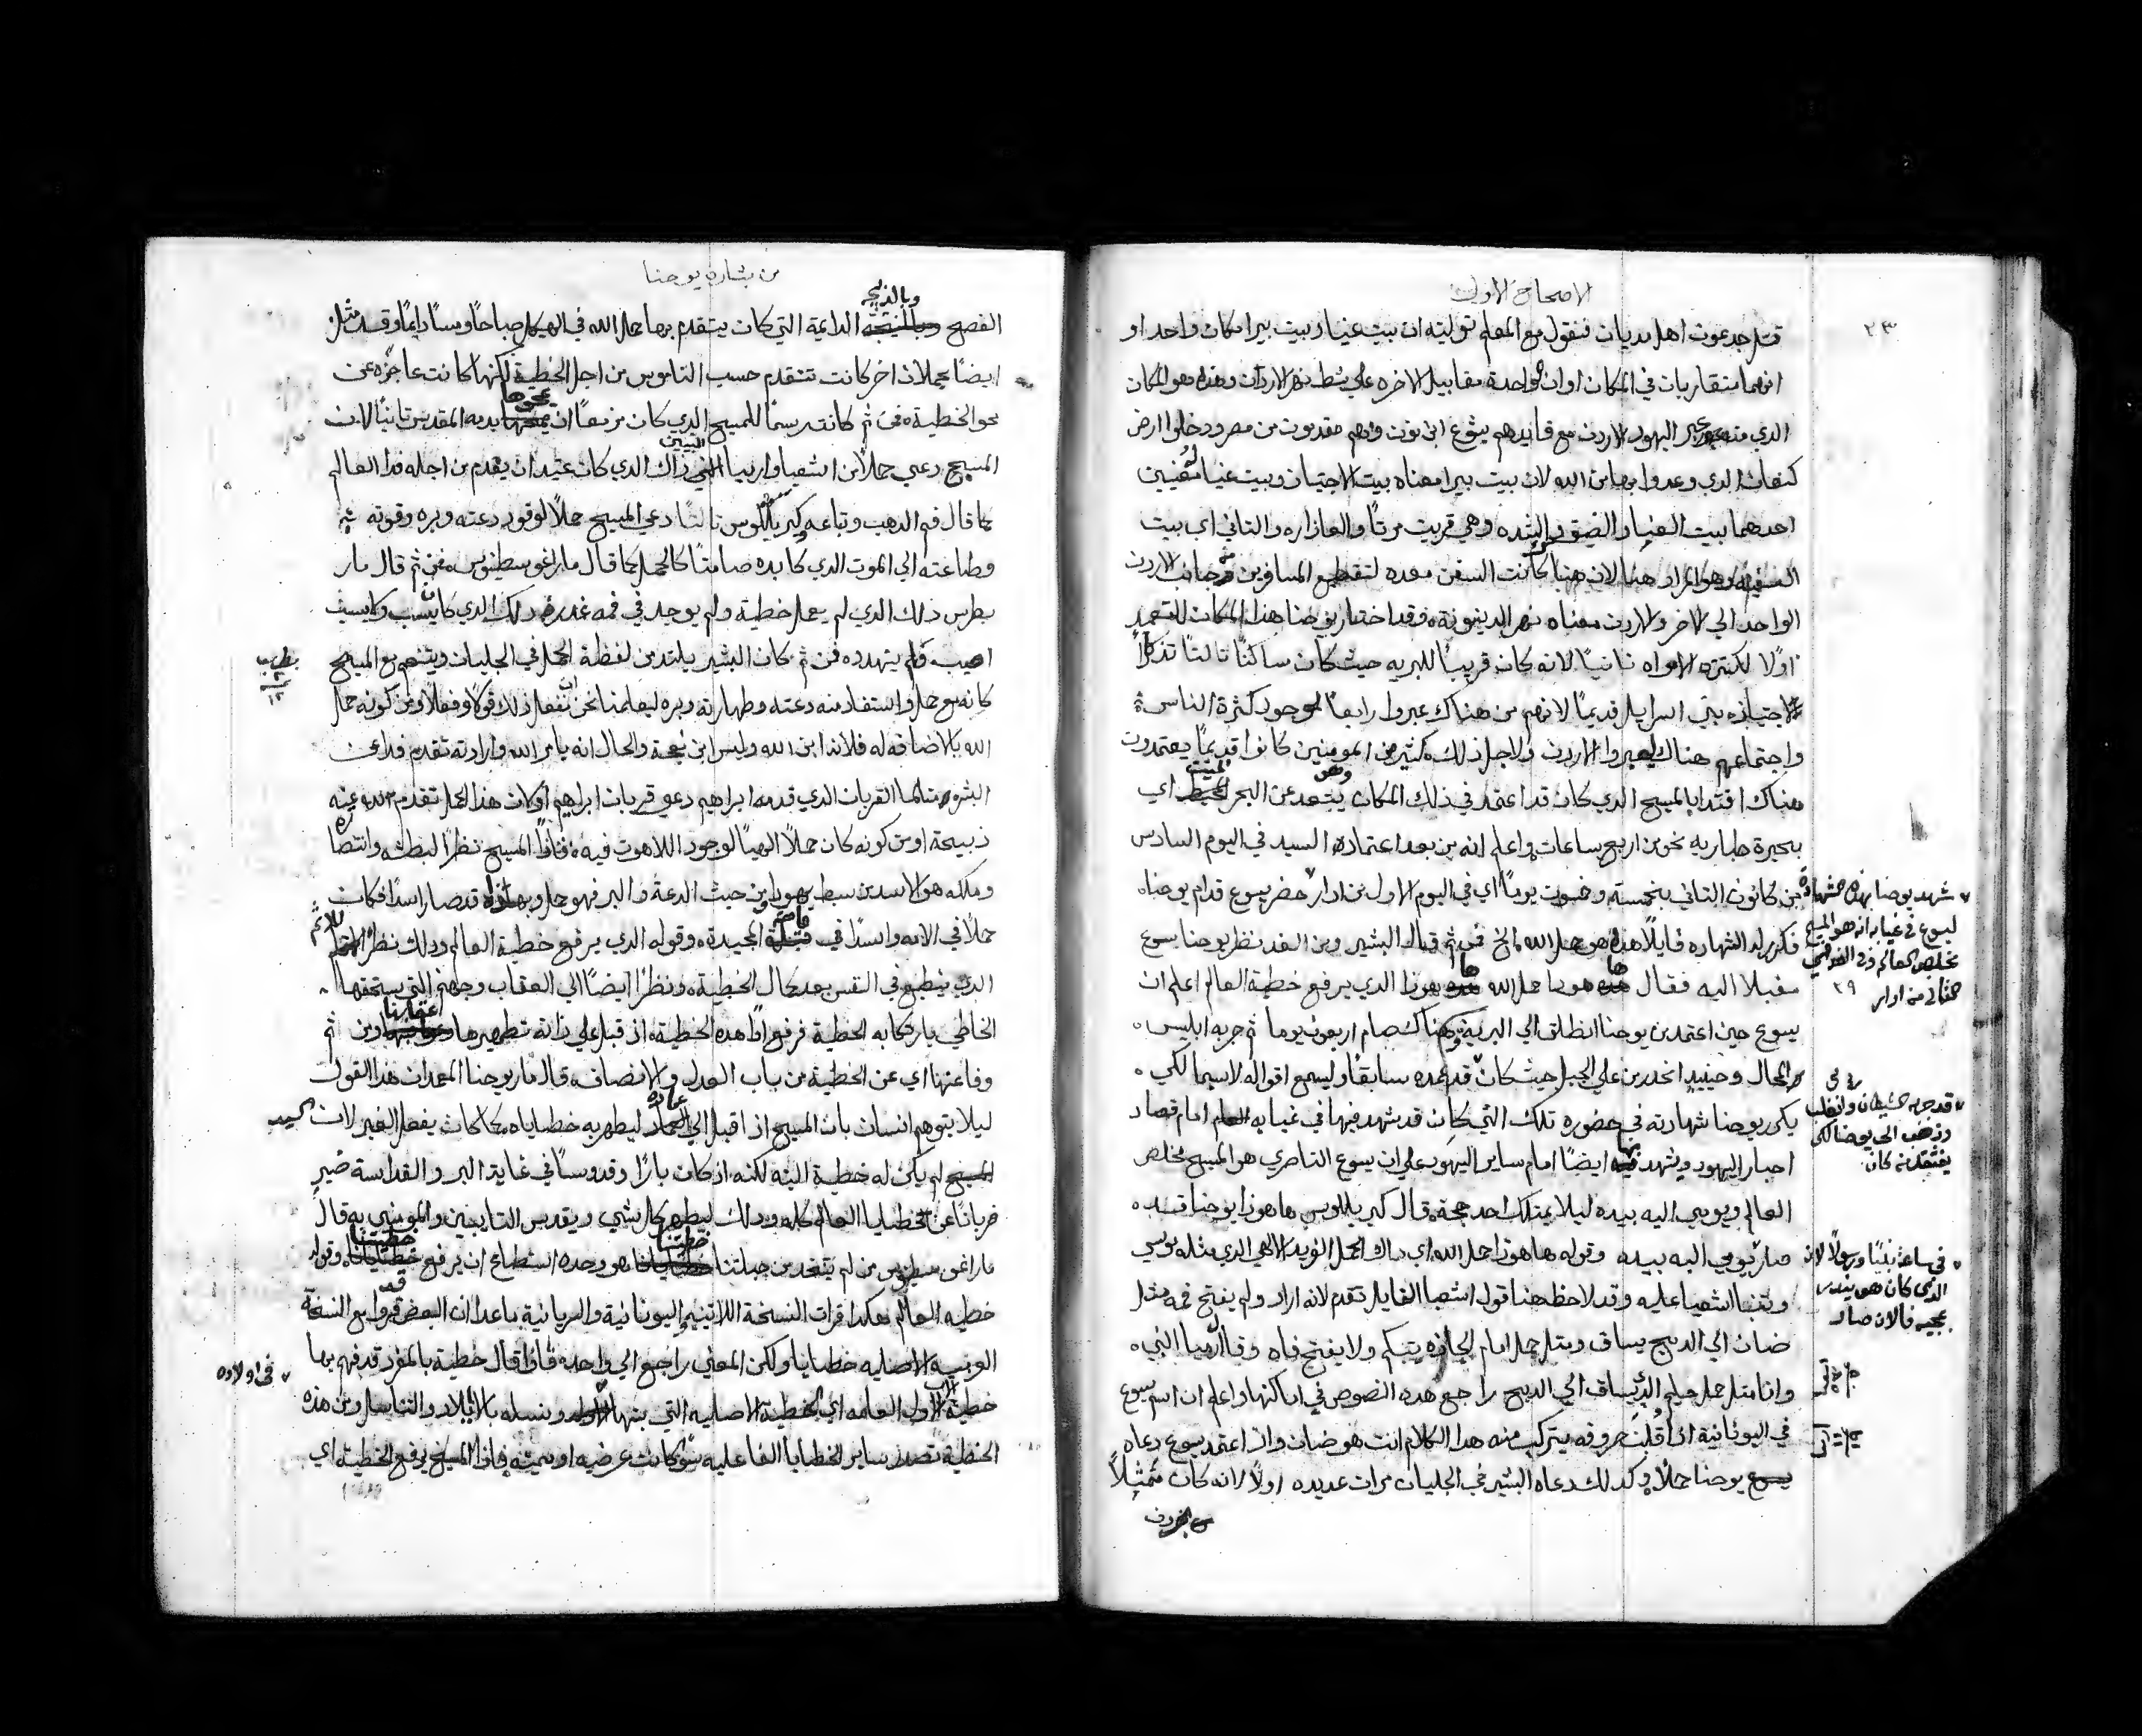 الاصحاح الاول
٢٣
قتل جدعون اهل مديان فنقول مع المعلم توليته ان بيت عنيا وبيت بيرا مكان واحد او
انهما متقاربان في المكان او ان الواحدة مقابيل الاخره علي شط نهر الاردن وهذا هو المكان
الذي منه عبر اليهود الاردن مع قايدهم يشوع ابن نون وهم مقدمون من مصر ودخلوا ارض
كنعان الذي وعدوا بها من الله لان بيت بيرا معناه بيت الاجتيان وبيت عنيا معنيين
احدهما بيت العنيا والضيق والشده وهي قريت مرتا والعازاره والتاني اي بيت
السفينه وهو المراد هنا لان هناك كانت السفن معده لتقطع المسافرين من جانب الاردن
الواحد الي الاخر والاردن معناه نهر الدينونة فقد اختار يوحنا هذا المكان للتعميد
اولا لكثرة الامواه تانيا لانه كان قريبا للبريه حيث كان ساكنا تالتا تذكارا
لاجتيازه بني اسراييل قديما لانهم من هناك عبروا رابعا لموجود كثرة الناس
واجتماعهم هناك ليعبروا الاردن ولاجل ذلك كثير من المومنين كانوا قديما يعتمدون
هناك اقتدا بالمسيح الذي كان قد اعتمد في ذلك المكان وهو يبتعد عن البحر الميت اي
بحيرة طباريه نحو من اربع ساعات واعلم انه من بعد اعتماده السيد في اليوم السادس
من كانون التاني بخمسة وخمسون يوما اي في اليوم الاول من ادار حضر يسوع قدام يوحنا
فكرر له الشهاده قايلا هذا هو حمل الله الخ فمن ثم قال البشير ومن الغد نظر يوحنا يسوع
مقبلا اليه فقال ها هوذا حمل الله ها هوذا الذي يرفع خطية العالم اعلم ان
يسوع حين اعتمد من يوحنا انطلق الي البرية وهناك صام اربعون يوما ثم جربه ابليس
المحال وحينيذ انحدر من علي الجبل حيث كان قد عمده سابقا وليسمع اقواله لاسيما لكي
يكرر يوحنا شهادته في حضوره تلك التي كان قد شهد فيها في غيابه امام قصاد
احبار اليهود ويشهد بها ايضا امام ساير اليهود علي ان يسوع الناصري هو المسيح مخلص
العالم ويومي اليه بيده ليلا يمتلك احد حجة قال كيريللوس ها هوذا يوحنا قد
صار يومي اليه بيده وقوله ها هوذا حمل الله اي ذاك الحمل الفريد الالهي الذي مثله موسي
وتنبا اشعيا عليه وقد لاحظ هنا قول اشعيا القايل تقدم لانه اراد ولم يفتح فمه مثل
ضان الي الدبح يساق ومثل حمل امام الجازه يتبكم ولا يفتح فاه وقال ارميا النبي
وانا مثل حمل حليم الذي يساق الي الدبح راجع هذه النصوص في اماكنها واعلم ان اسم يسوع
في اليونانية اذا قلبت حروفه يتركب منه هذا الكلام انت هو ضان واذ اعتمد يسوع دعاه
يوحنا حملا وكذلك دعاه البشير في الجليان مرات عديده اولا لانه كان ممثلا
الخروف
شهد يوحنا بهذه الشهادة
ليسوع في غيابه انه هو المسيح
مخلص العالم وفي الغد اي
من ادار ٢٩
قد جربه الشيطان وانغلب
وذهب الي يوحنا لكي
يفتقد من كان
في ساعة نبيا ورسولا لان
الذي كان هو ينذر
بمجيه فالان صار
من بشارة يوحنا
الفصح وبالذبيحه الدايمة التي كان يتقدم بها حمل الله في الهيكل صباحا ومساء دايما وقد مثل
ايضا بحملان اخر كانت تتقدم حسب الناموس من اجل الخطية لكنها كانت عاجزه عن
محو الخطية فمن ثم كانت رسما للمسيح الذي كان مزمعا ان يمحوها بدمه المقدس تانيا لان
المسيح دعي حملا من اشعيا وارميا النبيين ذاك الذي كان عتيدا ان يقدم من اجله فدا العالم
كما قال فم الدهب وتباعه كيريللوس تالتا دعي المسيح حملا لوفور دعته وبره وقوته
وطاعته الي الموت الذي كابده صامتا كالحمل كما قال مار اغوسطينوس فمن ثم قال مار
بطرس ذلك الذي لم يعمل خطية ولم يوجد في فمه غدر ذلك الذي كان يسب ولا يسب
اصيب ولم يتهدد فمن ثم كان البشير يلتد من لفظة الحمل في الجليان ويتنعم مع المسيح
كانه مع حمل واستفاد منه دعته وطهارته وبره ليعلمنا نحن ان نفعل ذلك قولا وفعلا ومن كونه حمل
الله بالاضافه له فلانه ابن الله وليس ابن نعجة والحال انه بامر الله وارادته تقدم فدا عن
البشر مثلما القربان الذي قدمه ابراهيم دعي قربان ابراهيم او كان هذا الحمل تقدم لله عنه
ذبيحة او من كونه كان حملا الهيا لوجود اللاهوت فيه فاذا المسيح نظرا لبطشه وانتصاره
وملكه هو الاسد من سبط يهودا من حيث الدعة والبر فهو حمل وبهذا قد صار اسدا فكان
حملا في الامه واسدا في قيامته المجيدة وقوله الذي يرفع خطية العالم وذلك نظرا للاثم
الذي ينطبع في النفس بعد كمال الخطية ونظرا ايضا الي العقاب وجهنم التي يستحقها
الخاطي بارتكابه الخطية فرفع اذا هذه الخطية اذ قبل علي ذاته تطهيرها ومن ثم
وفا عنها اي عن الخطية من باب العدل والانصاف قال مار يوحنا المعمدان هذا القول
ليلا يتوهم انسان بان المسيح اذ اقبل الي عماده ليطهر به خطاياه كما كان يفعل الغير لان السيد
لم يكن له خطية البته لكنه اذ كان بارا وقدوسا في غاية البر والقداسة صير
قربانا عن خطايا العالم كله وذلك ليطهر كل شي ويقدس التايبين والمومنين به قال
مار اغوسطينوس من لم يتخد من جبلتنا خطيتنا هو وحده استطاع ان يرفع خطيتنا وقوله
خطية العالم هكذا قرات النسخة اللاتينيه واليونانية والسريانية ماعدا ان البعض قد قروا مع النسخة
العربيه الاصليه خطايا ولكن المعني راجع الي واحده فاذا قال خطية بالمفرد قد فهم بها
خطية الاب الاول العامه اي الخطية الاصليه التي بتها ونسله بالايلاد والتناسل ومن هذه
الخطية تصدر ساير الخطايا الفاعليه سوا كانت عرضيه او مميته فاذا المسيح يرفع الخطية اي
بطرس
٢
١٢
في اولاده